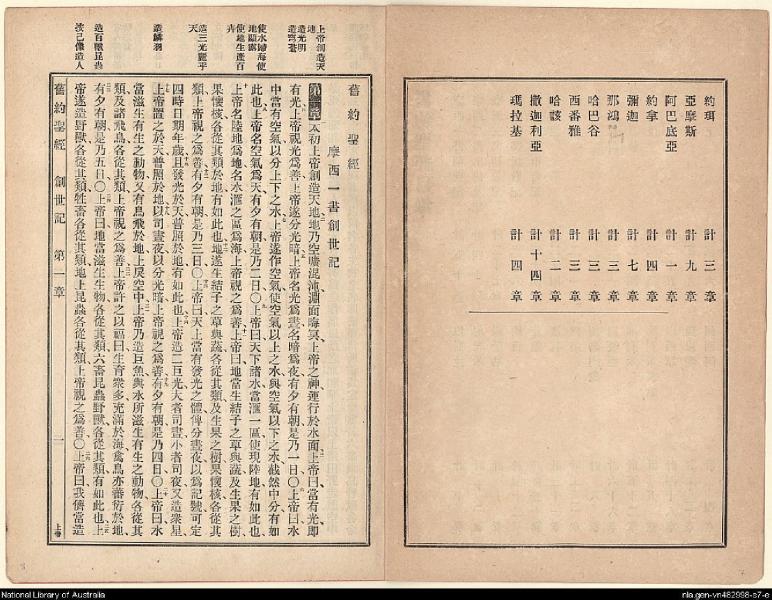 約珥 計三章
亞摩斯 計九章
阿巴底亞 計一章
約拿 計四章
彌迦 計七章
那鴻 計三章
哈巴谷 計三章
西番雅 計三章
哈該 計二章
撒迦利亞 計十四章
瑪拉基 計四章
上帝創造天
地
造光明
造穹蒼
使水歸海使
地顯露
使地生產百
卉
造三光麗乎
天
造鱗羽
造百獸昆蟲
按己像造人
舊約聖經
摩西一書創世記
第一章 太初上帝創造天地地乃空曠混沌淵面晦冥上帝之神運行於水面上帝曰當有光即
有光上帝視光爲善上帝遂分光暗上帝名光爲晝名暗爲夜有夕有朝是乃一日〇上帝曰水
中當有空氣以分上下之水上帝遂作空氣使空氣以上之水與空氣以下之水截然中分有如
此也上帝名空氣爲天有夕有朝是乃二日〇上帝曰天下諸水當滙一區使現陸地有如此也
上帝名陸地爲地名水滙之區爲海上帝視之爲善上帝曰地當生結子之草與蔬及生果之樹
果懷核各從其類於地有如此也地遂生結子之草與蔬各從其類及生果之樹果懷核各從其
類上帝視之爲善有夕有朝是乃三日〇上帝曰天上當有發光之體俾分晝夜以爲記號可定
四時日期年歲且發光於天普照於地有如此也上帝造二巨光大者司晝小者司夜又造衆星
上帝置之於天普照於地以司晝夜以分光暗上帝視之爲善有夕有朝是乃四日〇上帝曰水
當滋生有生之動物又有鳥飛於地上戾空中上帝乃造巨魚與水所滋生有生之動物各從其
類及諸飛鳥各從其類上帝視之爲善上帝許之以福曰生育衆多充滿於海禽鳥亦蕃衍於地
有夕有朝是乃五日〇上帝曰地當滋生生物各從其類六畜昆蟲野獸各從其類有如此也上
帝遂造野獸各從其類牲畜各從其類地上昆蟲各從其類上帝視之爲善〇上帝曰我儕當造
舊約聖經 創世記 第一章 一 上卷
National Library of Australia
nla.gen-vn482998-s7-e